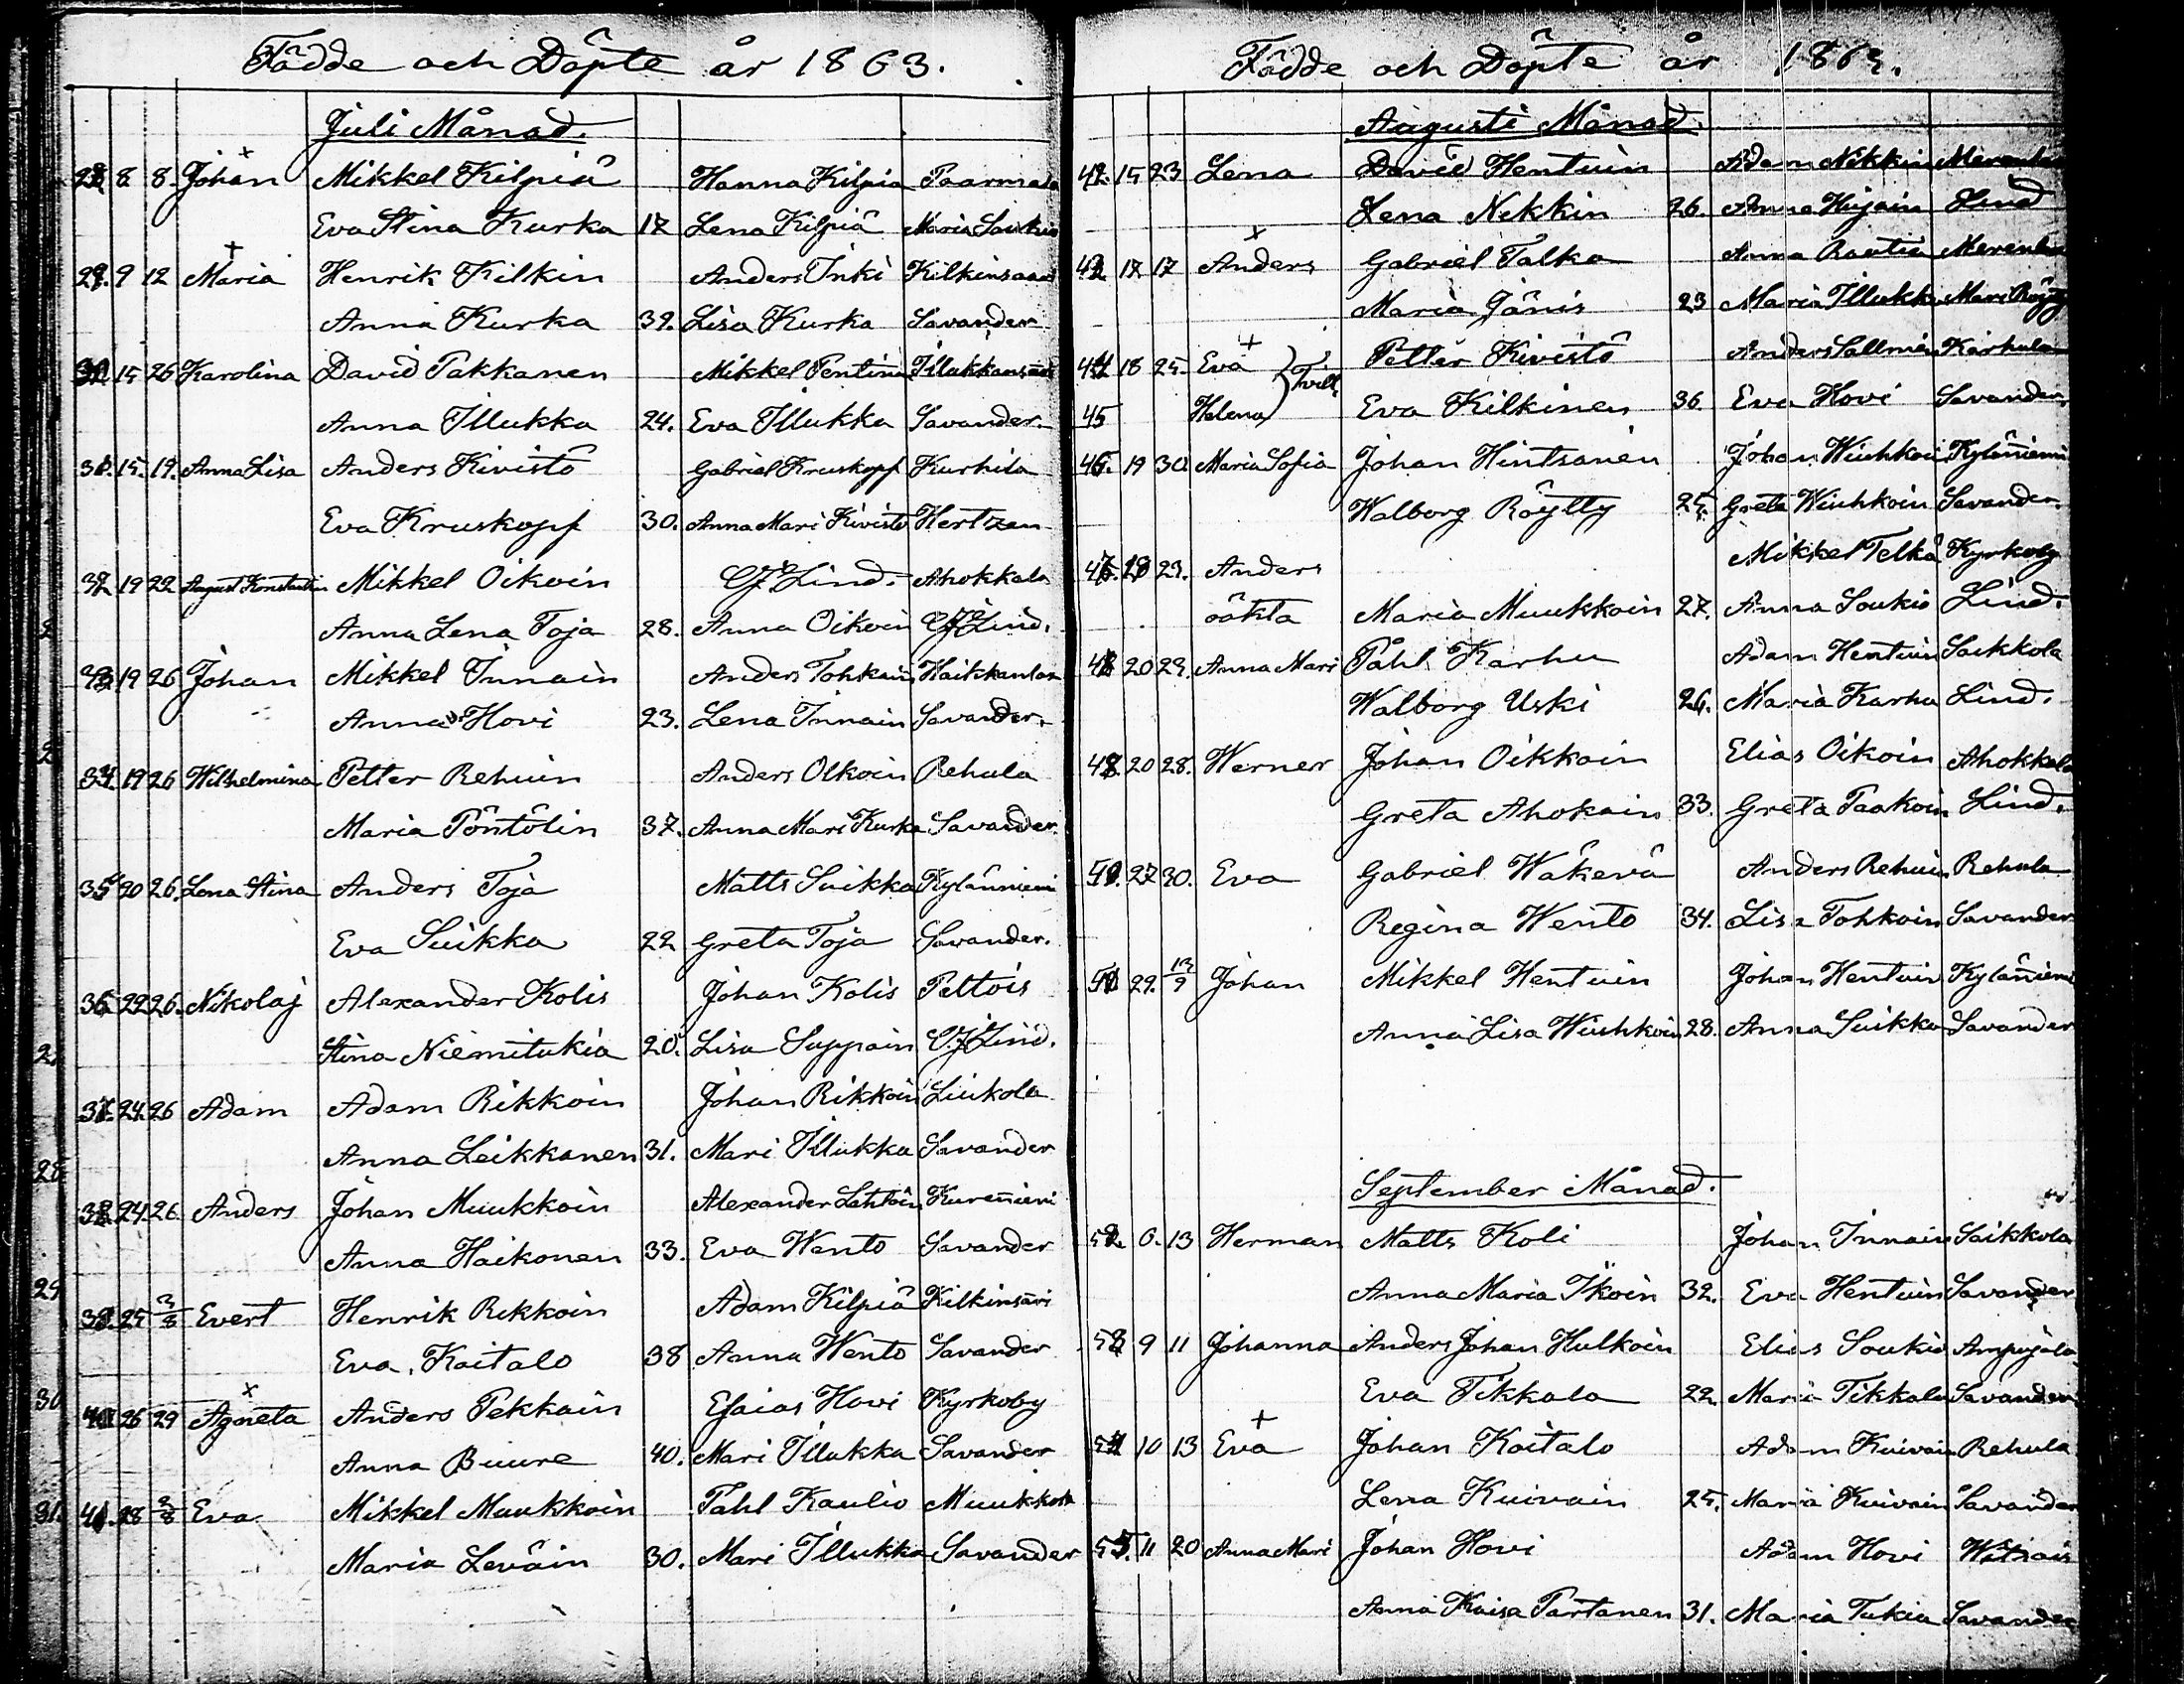 Födde och Döpte år 1863.
Juli Månad.
28 8 8. Johan Mikkel Kilpiä Hanna Kilpia Paarmala
Eva Stina Kurka 17 Lena Kilpiä Maria Soukio
29. 9 12 Maria Henrik Kilkin Anders Inki Kilkinsaari
Anna Kurka 39. Lisa Kurka Savander
30 15 26 Karolina David Pakkanen Mikkel Pentino
Anna Illukka 24. Eva Illukka Savander.
31. 15. 19. Anna Lisa Anders Kivistö Gabriel Kruskopf Kurhila
Eva Kruskopf 30. Anna Mari Kivisto Hertzan
32 19 22 August Konstantin Mikkel Oikoin CJ Lind. Ahokkala
Anna Lena Toja 28. Anna Oikoin CJ Lind.
33 19 26 Johan Mikkel Innain Anders Tohkain
Anna Hovi 23. Lena Innain Savander.
34. 19 26 Wilhelmina Petter Rehuin Anders Olkoin Rehula
Maria Pöntölin 37. Anna Mari Kurka Savander
35 20 26. Lena Stina Anders Toja Matts Suikka Kylänniemi
Eva Suikka 22 Greta Toja Savander.
36 22 26. Nikolaj Alexander Kolis Johan Kolis Peltois
Stina Niemitukia 20. Lisa Suppoin C.J Lind.
37. 24. 26 Adam Adam Rikkoin Johan Rikkoin Liukola
Anna Leikkanen 31. Mari Illukka Savander
38. 24. 26. Anders Johan Muukkoin Alexander Lehtoin Kureniemi
Anna Haikonen 33. Eva Wento Savander
39. 25 2/8 Evert Henrik Rikkoin Adam Kilpiä Kilkinsäri
Eva Koitalo 38 Anna Wento Savander
40 26 29 Agneta Anders Pekkain Esaias Hovi Kyrkoby
Anna Buure 40. Mari Illukka Savander
41. 28 2/8 Eva Mikkel Muukkoin Pahl Kaulio Muukkola
Maria Leväin 30. Mari Illukka Savander
Födde och Döpte år 1863.
Augusti Månad.
42. 15 23 Lena David Hentuin Adam Nikkin
Lena Nekkin 26. Anna Hujain Lind
43 17 17 Anders Gabriel Talka Anna Rautia
Maria Jänis 23 Maria Illukka Mari Röytty
44 18 25. Eva Petter Kivistö Anders Sallmin Karhula
45 Helena } Tvill. Eva Kilkinen 36. Eva Hovi Savander.
46. 19 30. Maria Sofia Johan Hintsanen Johan Wiuhkoi Kyläniemi
Walborg Röytty 25. Greta Wiuhkoin Savander.
47. 18 23. Anders Mikkel Telkä Kyrkoby
oäkta Maria Muukkoin 27. Anna Soukio Lind.
48 20 23. Anna Mari Påhl Karhu Adam Hentuin Saikkola
Walborg Uski 26. Maria Karhu Lind.
49 20 28. Werner Johan Oikkoin Elias Oikoin Ahokkala
Greta Ahokain 33. Greta Taakoin Lind.
50. 27 30. Eva Gabriel Wäkevä Anders Rehuin Rehula
Regina Wento 34. Lisa Tohkoin Savander
51 29. 13/9 Johan Mikkel Hentuin Johan Hentuin Kyläniemi
Anna Lisa Wiuhkoin 28. Anna Suikka Savander
September Månad.
52. 6. 13 Herman Matts Koli Johan Innain Saikkola
Anna Maria Ikoin 32. Eva Hentuin Savander
53 9 11 Johanna Anders Johan Hulkoin Elias Soukio Ampujala
Eva Tikkala 22 Maria Tikkala Savander
54 10 13 Eva Johan Koitalo Adam Kuivain Rehula
Lena Kuivain 25. Maria Kuivain Savander
55. 11 20 Anna Mari Johan Hovi Adam Hovi
Anna Kaisa Partanen 31. Maria Tukia Savander